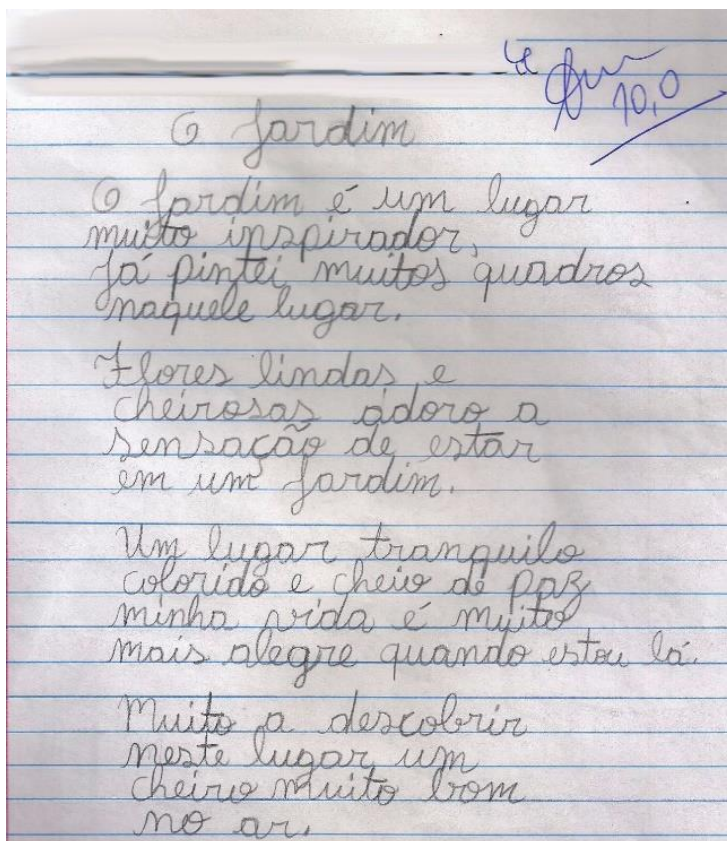 10,0
O Jardim
O Jardim é um lugar
muito inspirador,
Já pintei muitos quadros
naquele lugar.
Flores lindas e
cheirosas adoro a
sensação de estar
em um Jardim.
Um lugar tranquilo
colorido e cheio de paz
minha vida é muito
mais alegre quando estou lá.
Muito a descobrir
neste lugar um
cheiro muito bom
no ar.